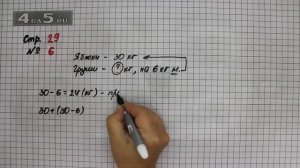 4DA5.RU
Стр. 29
№ 6
Яблоки - 30 кг
Груши - ? кг, на 6 кг м.
30 - 6 = 24 (кг) - гру
30 + (30 - 6)